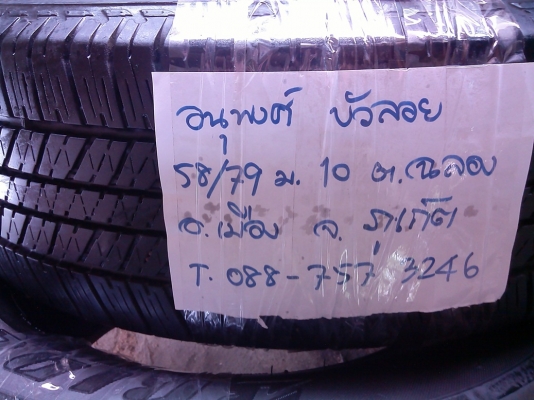 อนุพงศ์ บัวลอย
58/79 ม. 10 ต.ฉลอง
อ.เมือง จ. ภูเก็ต
T. 088-757 3246